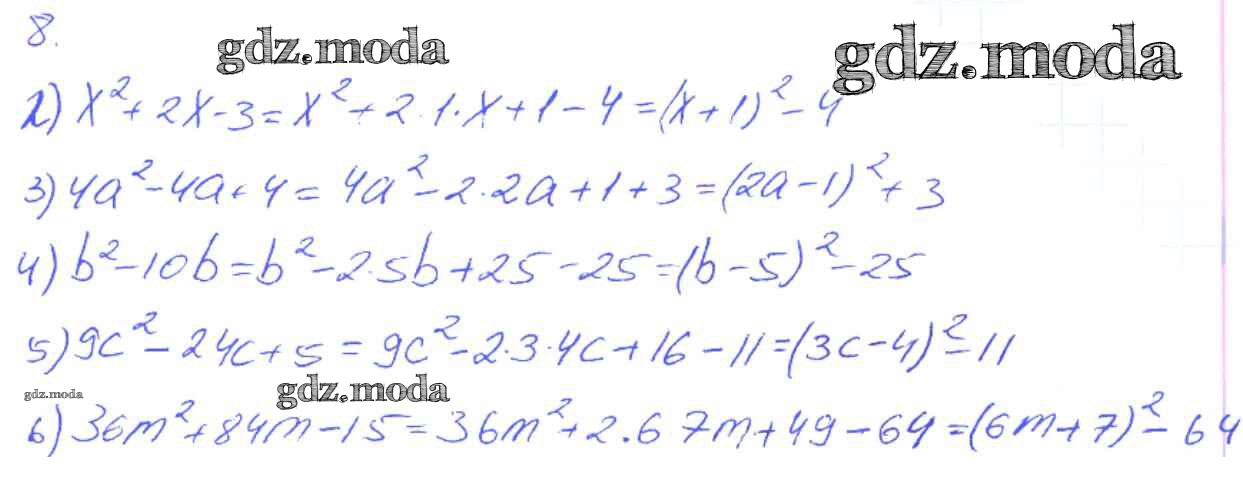 8.
gdz.moda
gdz.moda
2) x² + 2x - 3 = x² + 2·1·x + 1 - 4 = (x + 1)² - 4
3) 4a² - 4a + 4 = 4a² - 2·2a + 1 + 3 = (2a - 1)² + 3
4) b² - 10b = b² - 2·5b + 25 - 25 = (b - 5)² - 25
5) 9c² - 24c + 5 = 9c² - 2·3·4c + 16 - 11 = (3c - 4)² - 11
gdz.moda
gdz.moda
6) 36m² + 84m - 15 = 36m² + 2·6 7m + 49 - 64 = (6m + 7)² - 64